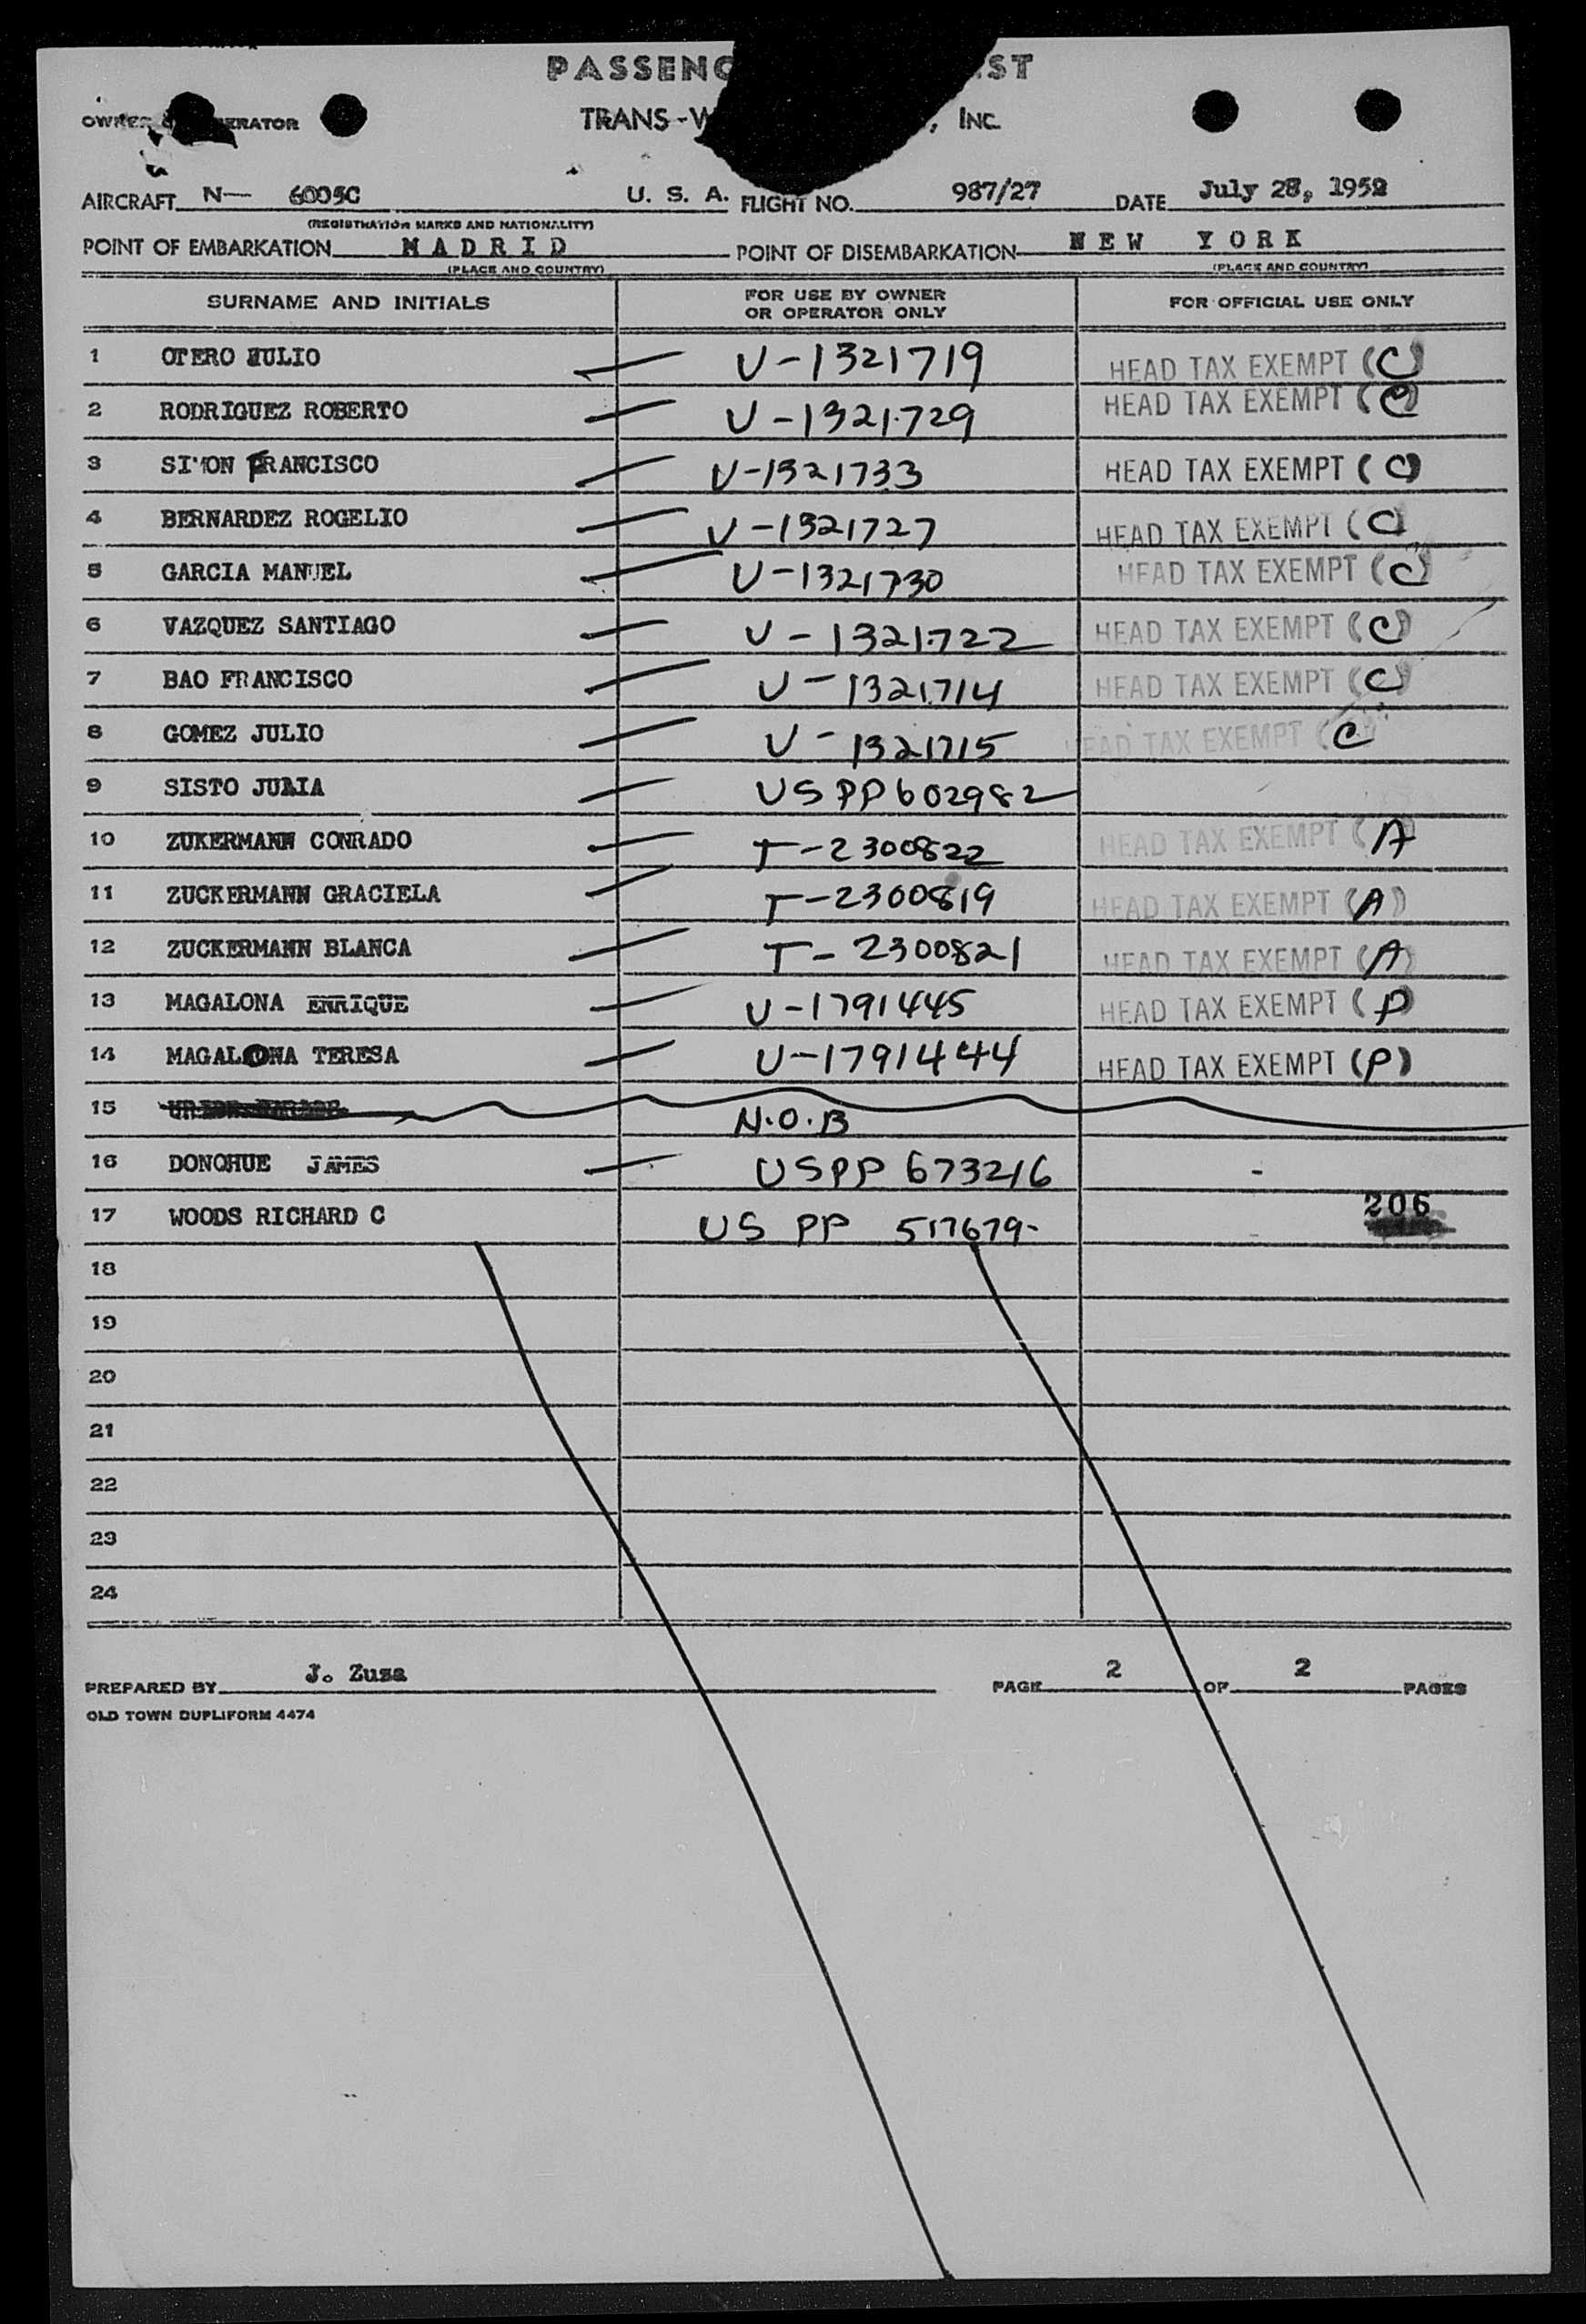 PASSENG ST
OWNER ERATOR TRANS-W , INC.
AIRCRAFT N— 6005C U. S. A. FLIGHT NO. 987/27 DATE July 28, 1952
(REGISTRATION MARKS AND NATIONALITY)
POINT OF EMBARKATION MADRID POINT OF DISEMBARKATION NEW YORK
(PLACE AND COUNTRY) (PLACE AND COUNTRY)
SURNAME AND INITIALS FOR USE BY OWNER OR OPERATOR ONLY FOR OFFICIAL USE ONLY
1 OTERO JULIO — U-1321719 HEAD TAX EXEMPT (C)
2 RODRIGUEZ ROBERTO — U-1321729 HEAD TAX EXEMPT (C)
3 SIMON FRANCISCO — U-1321733 HEAD TAX EXEMPT (C)
4 BERNARDEZ ROGELIO — U-1321727 HEAD TAX EXEMPT (C)
5 GARCIA MANUEL — U-1321730 HEAD TAX EXEMPT (C)
6 VAZQUEZ SANTIAGO — U-1321722 HEAD TAX EXEMPT (C)
7 BAO FRANCISCO — U-1321714 HEAD TAX EXEMPT (C)
8 GOMEZ JULIO — U-1321715 HEAD TAX EXEMPT (C
9 SISTO JULIA — US PP 602982
10 ZUKERMANN CONRADO — T-2300822 HEAD TAX EXEMPT (A
11 ZUCKERMANN GRACIELA — T-2300819 HEAD TAX EXEMPT (A)
12 ZUCKERMANN BLANCA — T-2300821 HEAD TAX EXEMPT (A)
13 MAGALONA ENRIQUE — U-1791445 HEAD TAX EXEMPT (P)
14 MAGALONA TERESA — U-1791444 HEAD TAX EXEMPT (P)
15 N.O.B
16 DONOHUE JAMES — USPP 673216 -
17 WOODS RICHARD C US PP 517679- - 206
18
19
20
21
22
23
24
PREPARED BY J. Zusa PAGE 2 OF 2 PAGES
OLD TOWN DUPLIFORM 4474